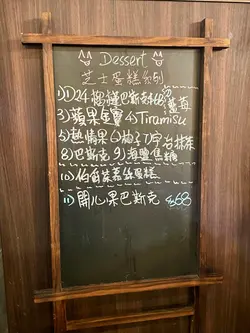 Dessert
芝士蛋糕系列
1)① 24 巴斯克 $68 藍莓
3) 蘋果金寶 4) Tiramisu
5) 熱情果 6) 柚子 7) 宇治抹茶
8) 巴斯克 9) 海鹽焦糖
10) 伯爵茶荔枝蛋糕
11) 開心果巴斯克 $68